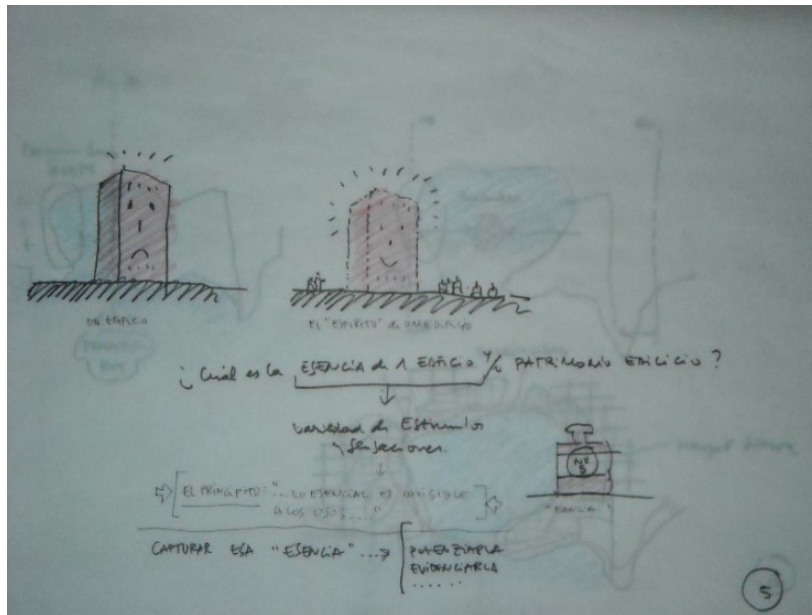 UN EDIFICIO
EL "ESPIRITU" de UN EDIFICIO
¿Cuál es la ESENCIA de 1 EDIFICIO y/o PATRIMONIO EDILICIO?
variedad de Estimulos
y sensaciones.
EL PRINCIPITO: "...LO ESENCIAL ES INVISIBLE
A LOS OJOS...."
Nº
5
"ESENCIA"
CAPTURAR ESA "ESENCIA" ...
POTENZIARLA
EVIDENCIARLA
......
5